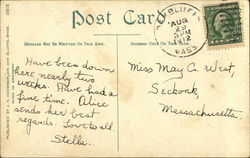 Post Card
MESSAGE MAY BE WRITTEN ON THIS SIDE.
ADDRESS ONLY ON THIS SIDE.
BLUFFS
AUG
29
PM
1912
MASS.
Have been down
here nearly two
weeks. Have had a
fine time. Alice
sends her best
regards. Love to all
Stella.
Miss May C. West,
Seekonk,
Massachusetts.